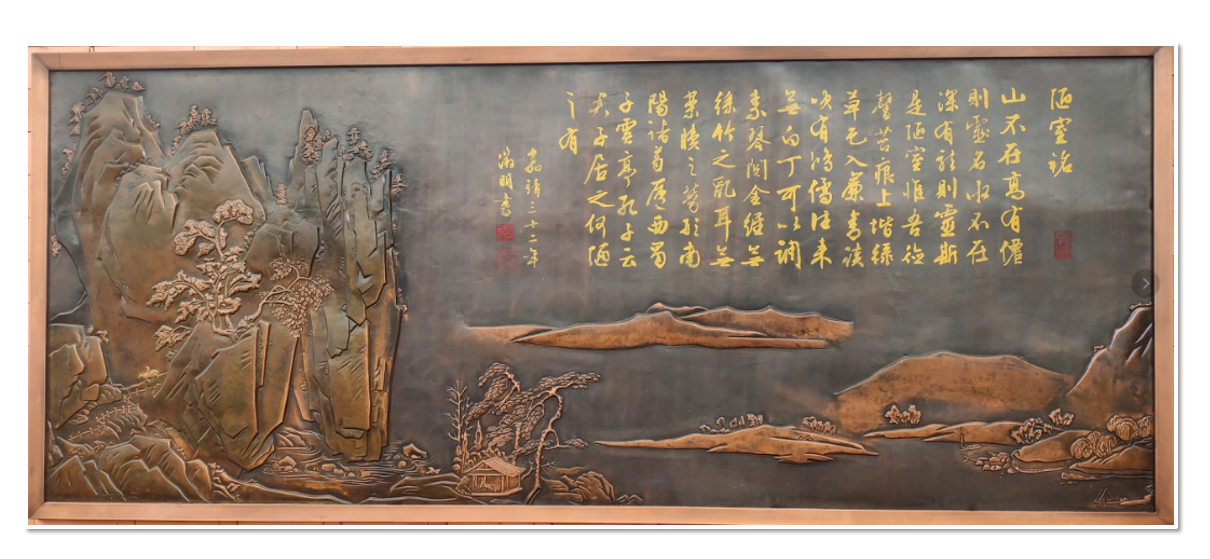 陋室銘
山不在高有僊
則靈名水不在
深有龍則靈斯
是陋室惟吾德
馨苔痕上堦綠
草色入簾青談
笑有鴻儒往來
無白丁可以調
素琴閱金經無
絲竹之亂耳無
案牘之勞形南
陽諸葛廬西蜀
子雲亭孔子云
君子居之何陋
之有
嘉靖三十二年
徵明書